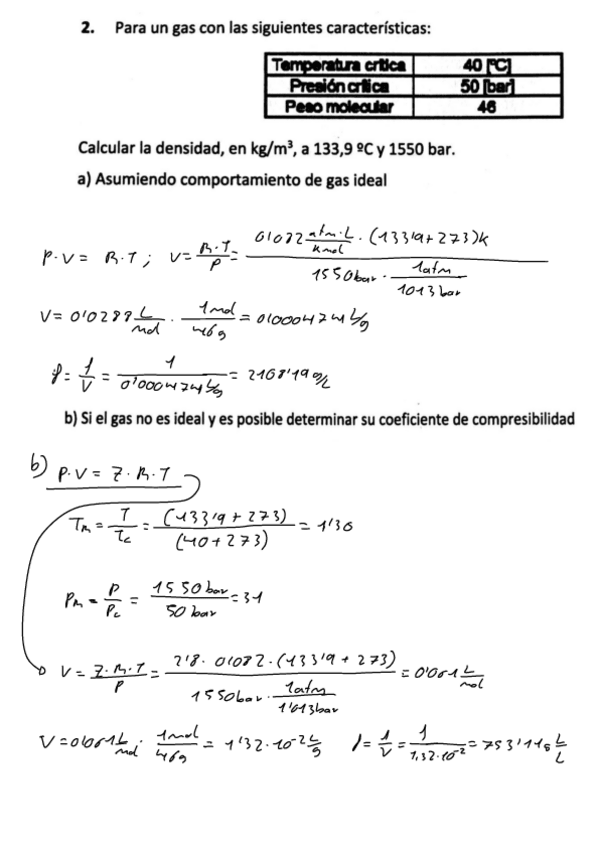 2. Para un gas con las siguientes características:
Temperatura crítica 40 [ºC]
Presión crítica 50 [bar]
Peso molecular 46
Calcular la densidad, en kg/m³, a 133,9 ºC y 1550 bar.
a) Asumiendo comportamiento de gas ideal
P·V = R·T ; V = R·T / P = 0'082 atm·L / K mol · (133'9 + 273)K / 1550bar · 1atm / 1013 bar
V = 0'0288 L/mol · 1mol / 46g = 0'000474 L/g
ρ = 1/V = 1 / 0'000474 L/g = 2108'19 g/L
b) Si el gas no es ideal y es posible determinar su coeficiente de compresibilidad
b) P·V = Z·R·T
TR = T / Tc = (133'9 + 273) / (40 + 273) = 1'30
PR = P / Pc = 1550 bar / 50 bar = 31
V = Z·R·T / P = 2'8 · 0'082 · (133'9 + 273) / 1550bar · 1atm / 1'013bar = 0'061 L/mol
V = 0'061 L/mol · 1mol / 46g = 1'32·10⁻² L/g ρ = 1/V = 1 / 1,32·10⁻² = 753'118 L/L